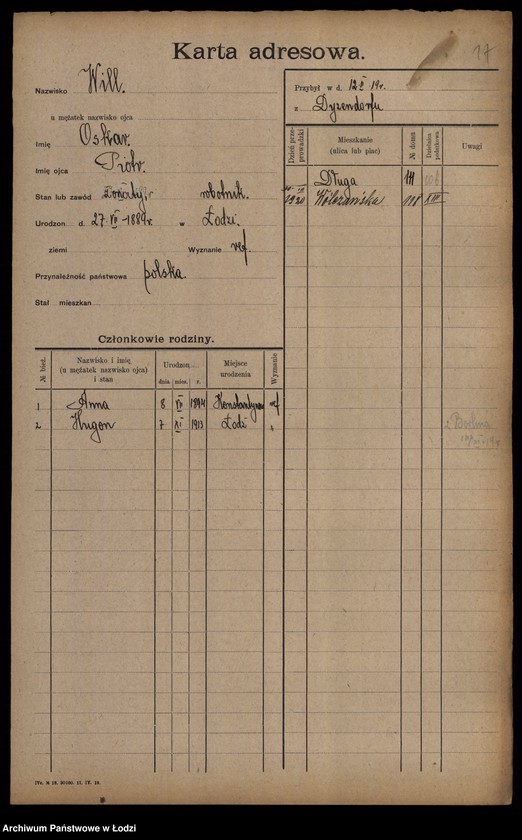 Karta adresowa.
17
Nazwisko Will.
u mężatek nazwisko ojca
Imię Oskar.
Imię ojca Piotr.
Stan lub zawód żonaty robotnik.
Urodzon d. 27 VII 1889 r. w Łodzi.
ziemi Wyznanie ref.
Przynależność państwowa polska
Stał mieszkan
Przybył w d. 12 19 r.
z Dyzendorfu
Dzień przeprowadzki
Mieszkanie (ulica lub plac)
№ domu
Dzielnica podatkowa
Uwagi
Długa 111
1920 Wólczańska 118 XIII
Członkowie rodziny.
№ bież.
Nazwisko i imię (u mężatek nazwisko ojca) i stan
Urodzon
dnia mies. r.
Miejsce urodzenia
Wyznanie
1 Anna 8 VII 1894 Konstantynów ref
2 Hugon 7 XI 1913 Łodź "
z Berlina
Archiwum Państwowe w Łodzi